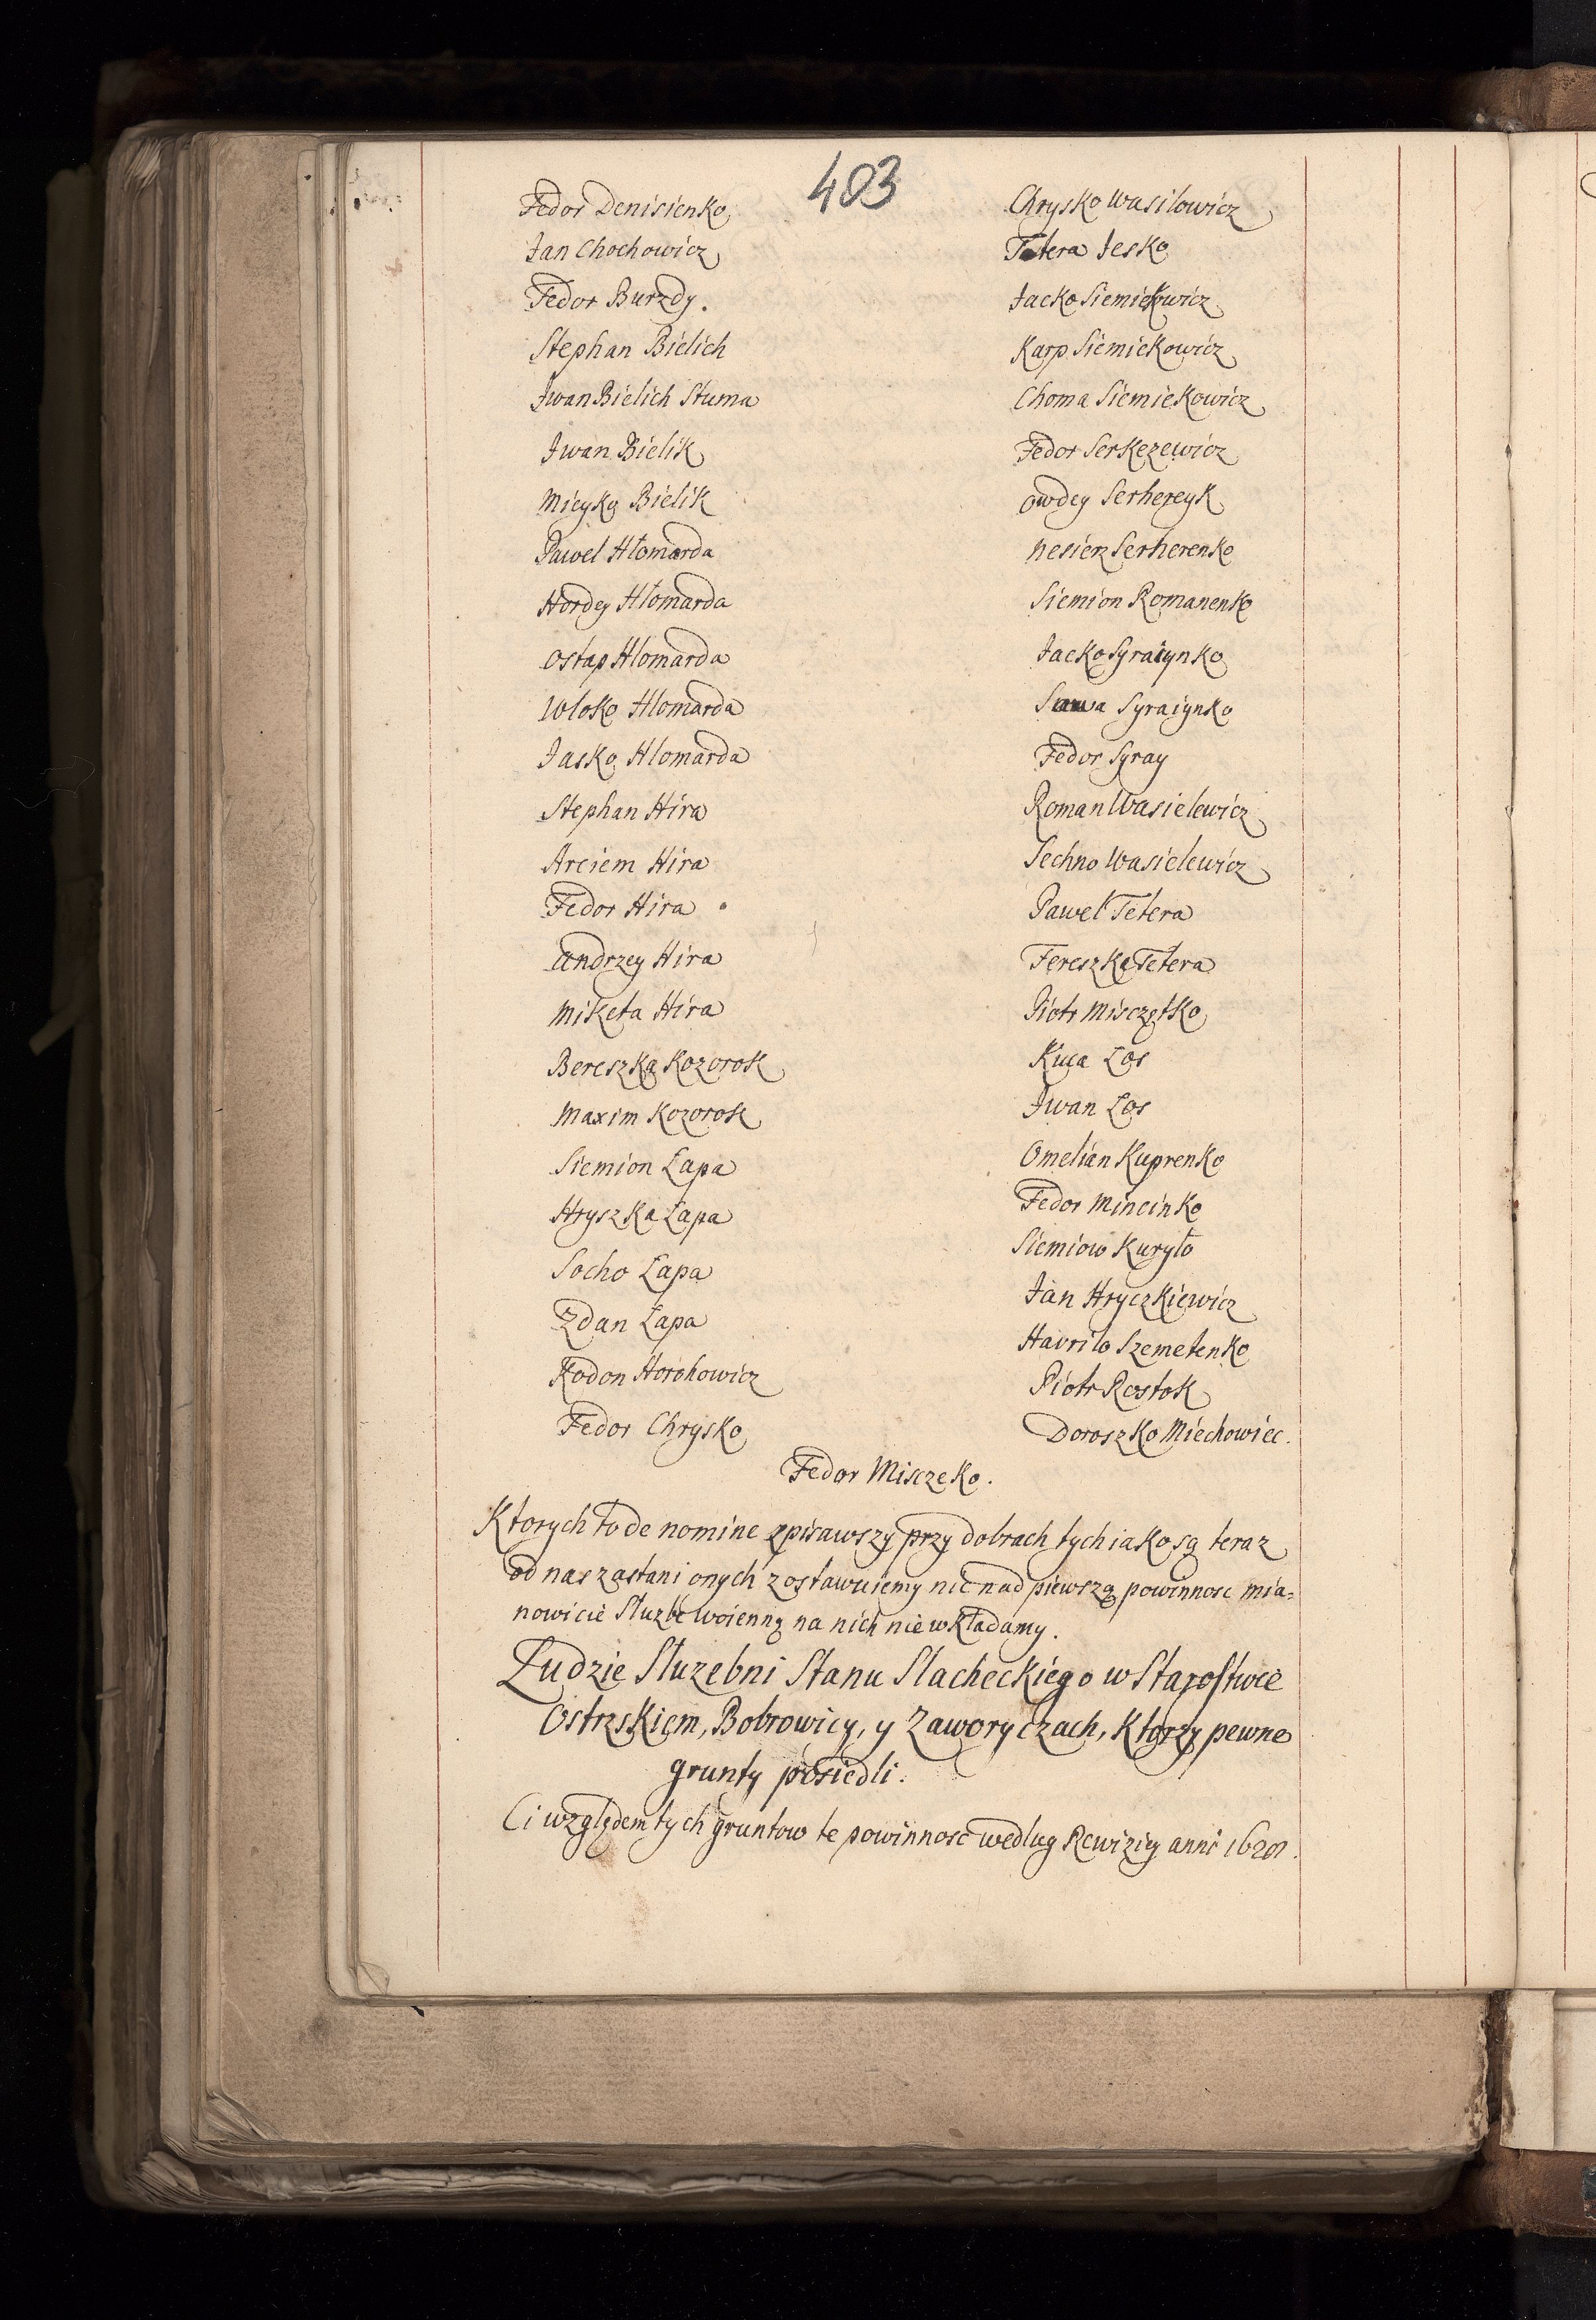 403
Fedor Denisienko
Jan Chochowicz
Fedor Burzdy.
Stephan Bielich
Jwan Bielich Stuma
Jwan Bielik
Mieyko Bielik
Pawel Hłomarda
Hordey Hłomarda
Ostap Hlomarda
Wloko Hlomarda
Jasko Hlomarda
Stephan Hira
Arciem Hira
Fedor Hira
Andrzey Hira
Miketa Hira
Bereszka Kozorok
Maxim Kozorok
Siemion Łapa
Hryszka Łapa
Socho Łapa
Zdan Łapa
Rodon Horohowicz
Fedor Chrysko
Chrysko Wasilowicz
Tetera Jesko
Jacko Siemiekowicz
Karp Siemiekowicz
Choma Siemiekowicz
Fedor Serkezewicz
Owdey Serhereyk
Nesierz Serherenko
Siemion Romanenko
Jacko Syraiynko
Sawa Syraiynko
Fedor Syray
Roman Wasielewicz
Sechno Wasielewicz
Pawel Tetera
Tereszka Tetera
Piotr Misczętko
Los
Jwan Los
Omelian Kuprenko
Fedor Mincinko
Siemiow Kuryło
Jan Hryczkiewicz
Havriło Szemetenko
Piotr Rostok
Doroszko Miechowiec.
Fedor Misczeko.
Ktorych to de nomine spisawszy przy dobrach tych iako są teraz
od nas zastani onych zostawuiemy nic nad piewszą powinnosc mia=
nowicie Służbę woienną na nich nie wkładamy.
Ludzie Służebni Stanu Slacheckiego w Starostwie
Ostrzskiem, Bobrowicy, y Zaworyczach, Ktorzy pewne
grunty posiedli.
Ci względem tych gruntow te powinnosc wedlug Rewiziey anni 1628.